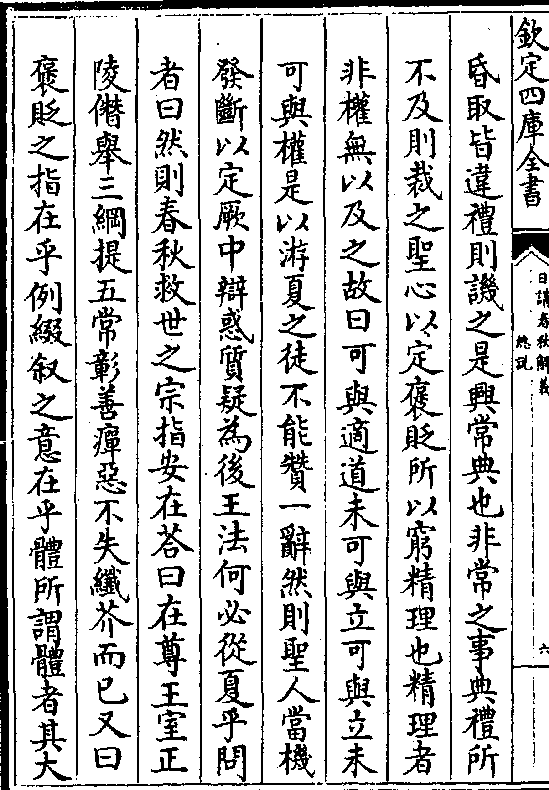 欽定四庫全書
日講春秋解義
總說
六
昏取皆違禮則譏之是興常典也非常之事典禮所
不及則裁之聖心以定褒貶所以窮精理也精理者
非權無以及之故曰可與適道未可與立可與立未
可與權是以游夏之徒不能贊一辭然則聖人當機
發斷以定厥中辯惑質疑為後王法何必從夏乎問
者曰然則春秋救世之宗指安在荅曰在尊王室正
陵僭舉三綱提五常彰善癉惡不失纖芥而已又曰
褒貶之指在乎例綴叙之意在乎體所謂體者其大